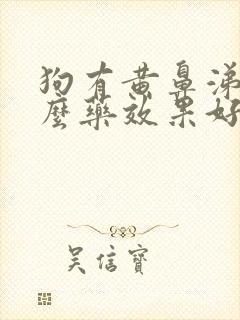 狗有黄鼻涕
麼藥效果好
吴信寶